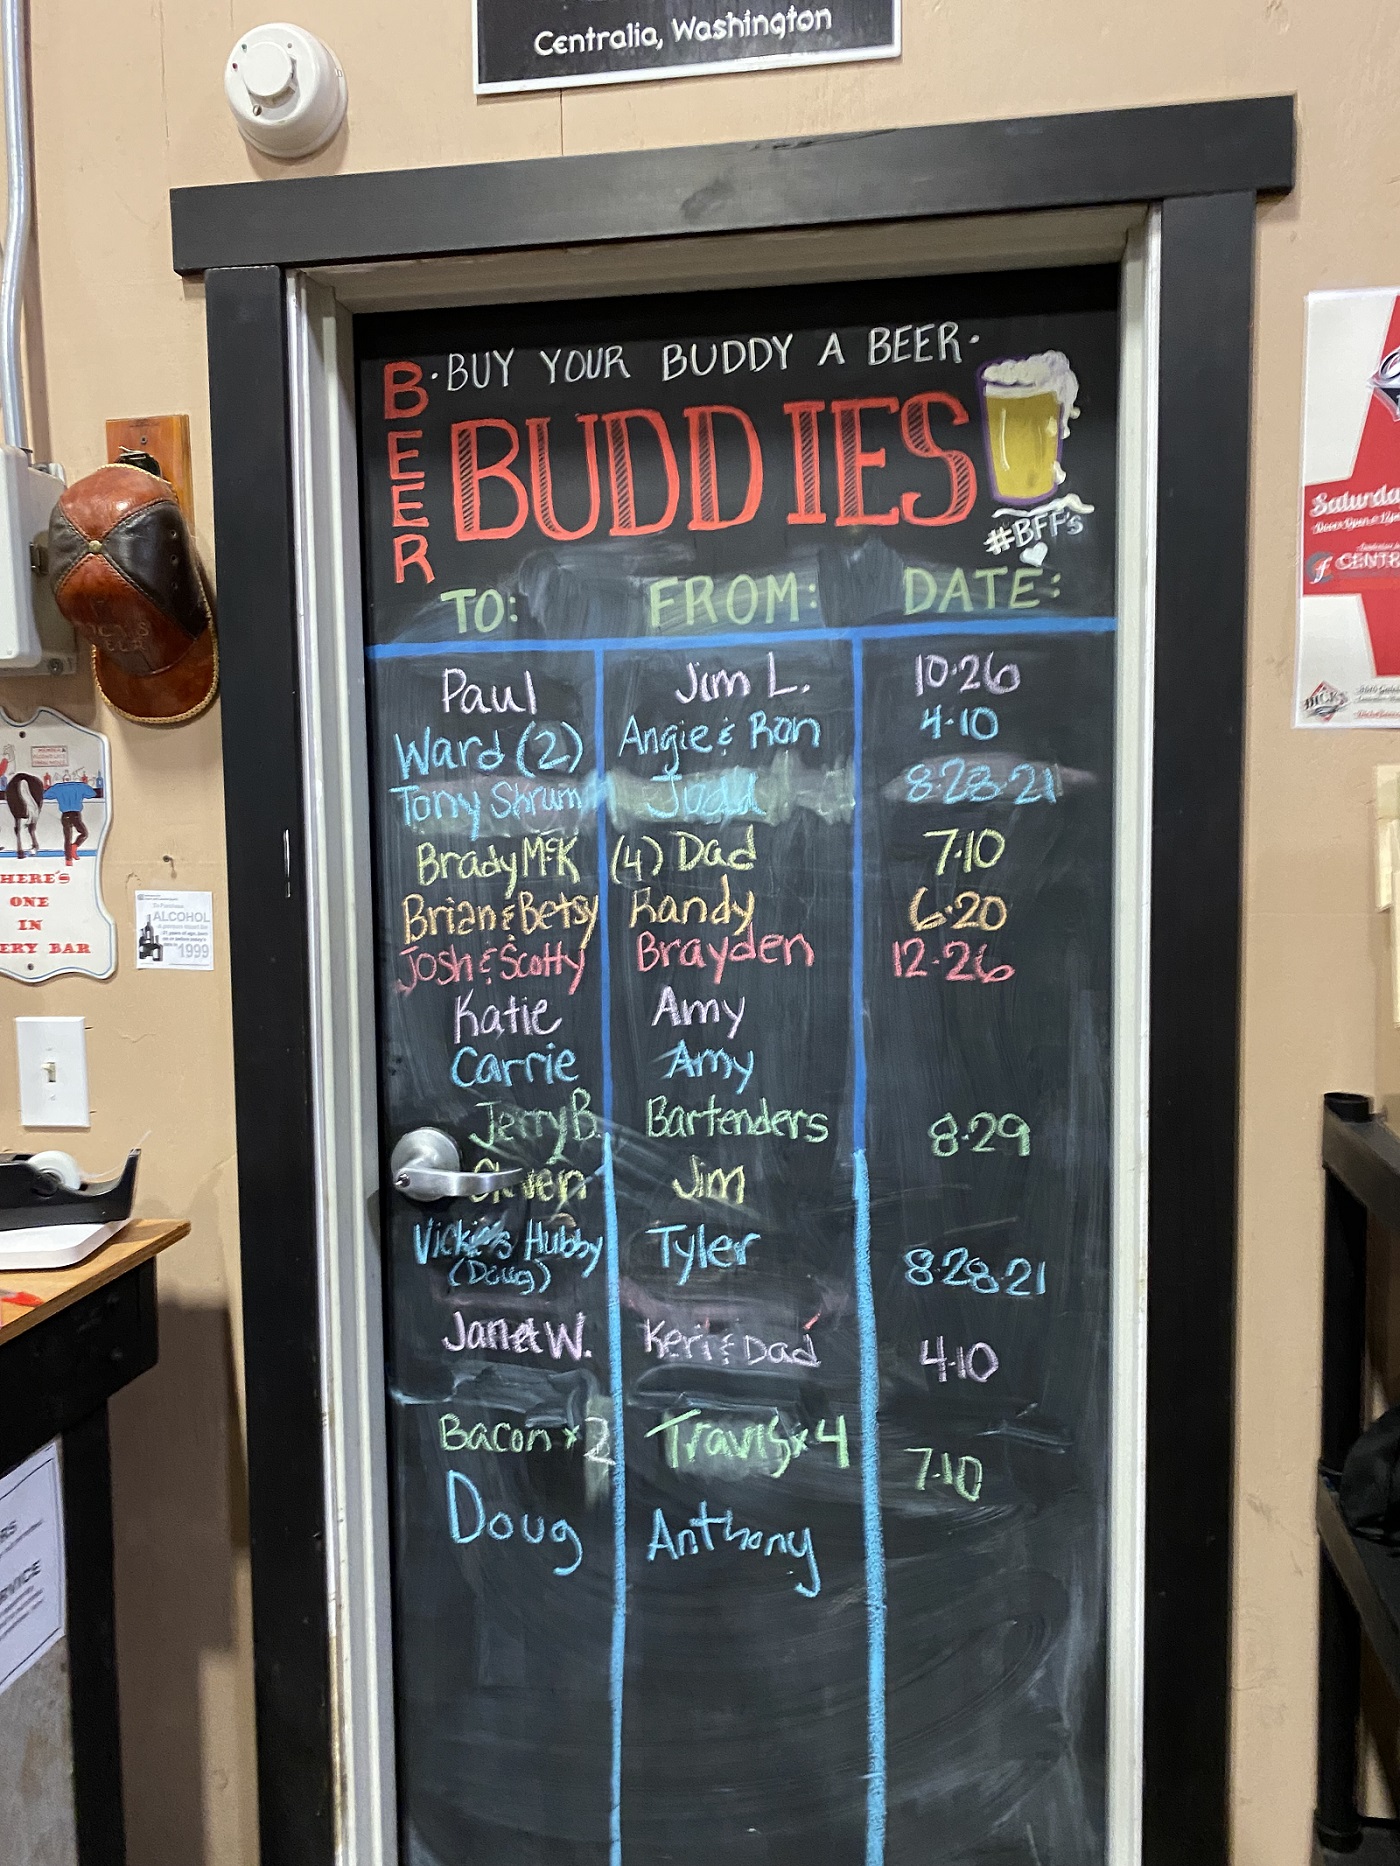 Centralia, Washington
BEER
·BUY YOUR BUDDY A BEER·
BUDDIES
#BFF's
TO: FROM: DATE:
Paul Jim L. 10·26
Ward (2) Angie & Ron 4·10
Tony Shrum 8·28·21
Brady McK (4) Dad 7·10
Brian & Betsy Randy 6·20
Josh & Scotty Brayden 12·26
Katie Amy
Carrie Amy
Jerry B. Bartenders 8·29
Steven Jim
Vickie's Hubby Tyler 8·28·21
(Doug)
Janet W. Keri & Dad 4·10
Bacon x 2 Travis x 4 7·10
Doug Anthony
HERE'S
ONE
IN
ERY BAR
ALCOHOL
1999
Saturda
CENTR
DICK'S
RS
RVICE